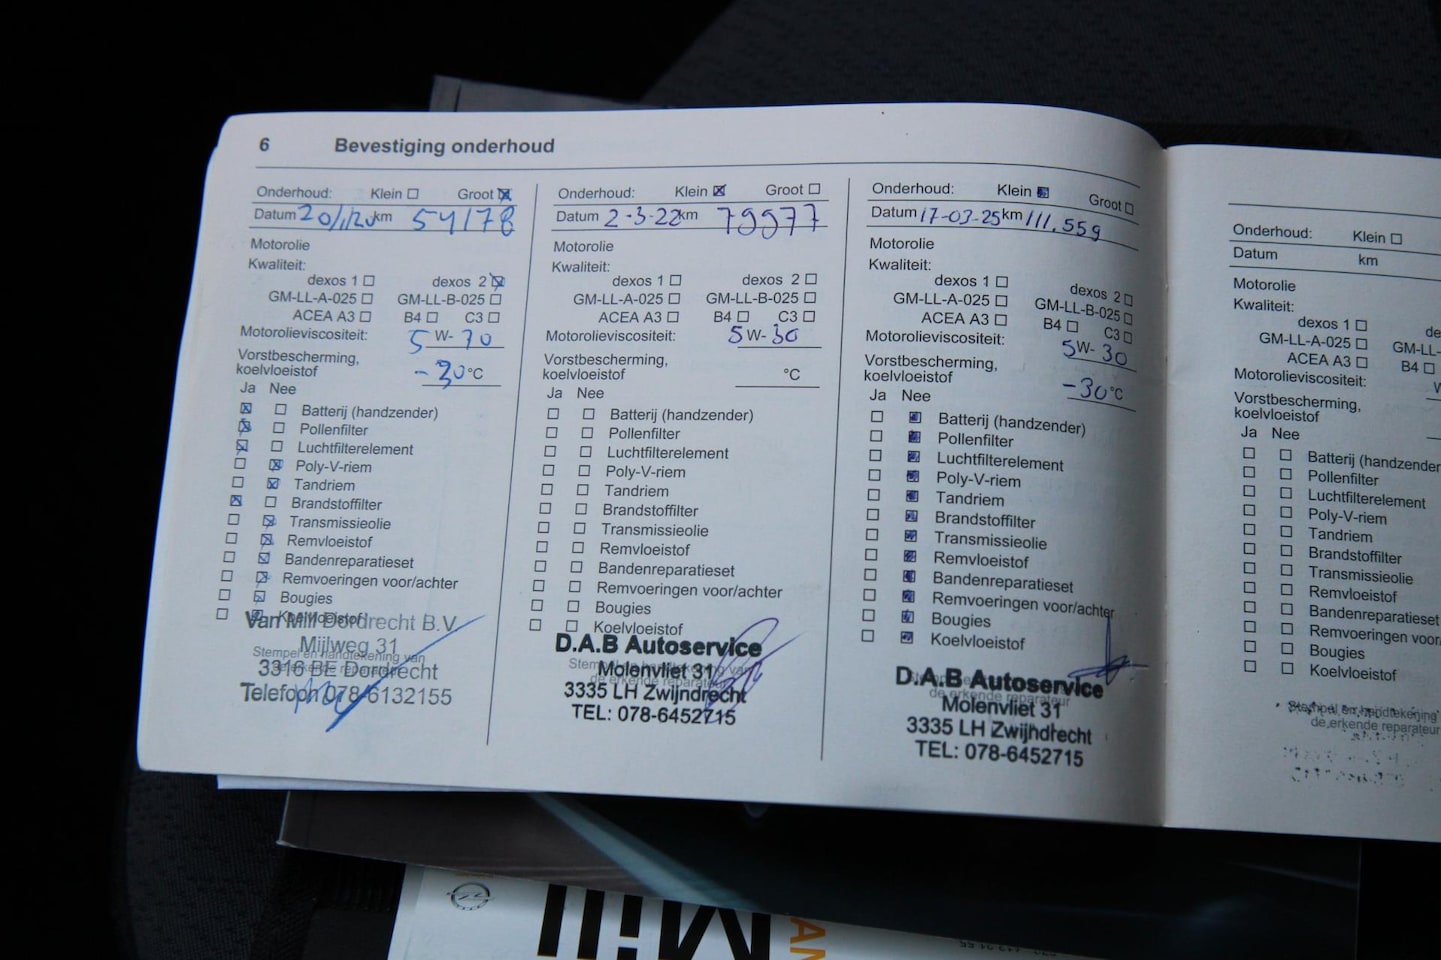 6 Bevestiging onderhoud
Onderhoud: Klein ☐ Groot ☒
Datum km 54178
Motorolie
Kwaliteit:
dexos 1 ☐ dexos 2 ☒
GM-LL-A-025 ☐ GM-LL-B-025 ☐
ACEA A3 ☐ B4 ☐ C3 ☐
Motorolieviscositeit: 5 W-
Vorstbescherming,
koelvloeistof -30 °C
Ja Nee
☒ ☐ Batterij (handzender)
☒ ☐ Pollenfilter
☒ ☐ Luchtfilterelement
☐ ☒ Poly-V-riem
☐ ☒ Tandriem
☒ ☐ Brandstoffilter
☐ ☒ Transmissieolie
☐ ☒ Remvloeistof
☐ ☒ Bandenreparatieset
☐ ☒ Remvoeringen voor/achter
☐ ☒ Bougies
☐ ☒ Koelvloeistof
Van Mill Dordrecht B.V.
Mijlweg 31
Stempel en handtekening van
3316 BE Dordrecht
Telefoon 078-6132155
Onderhoud: Klein ☒ Groot ☐
Datum 2-3-22 km 79977
Motorolie
Kwaliteit:
dexos 1 ☐ dexos 2 ☐
GM-LL-A-025 ☐ GM-LL-B-025 ☐
ACEA A3 ☐ B4 ☐ C3 ☐
Motorolieviscositeit: 5 W-30
Vorstbescherming,
koelvloeistof °C
Ja Nee
☐ ☐ Batterij (handzender)
☐ ☐ Pollenfilter
☐ ☐ Luchtfilterelement
☐ ☐ Poly-V-riem
☐ ☐ Tandriem
☐ ☐ Brandstoffilter
☐ ☐ Transmissieolie
☐ ☐ Remvloeistof
☐ ☐ Bandenreparatieset
☐ ☐ Remvoeringen voor/achter
☐ ☐ Bougies
☐ ☐ Koelvloeistof
D.A.B Autoservice
Stempel en handtekening van
Molenvliet 31
de erkende reparateur
3335 LH Zwijndrecht
TEL: 078-6452715
Onderhoud: Klein ☒ Groot ☐
Datum 17-03-25 km 111.559
Motorolie
Kwaliteit:
dexos 1 ☐ dexos 2 ☐
GM-LL-A-025 ☐ GM-LL-B-025 ☐
ACEA A3 ☐ B4 ☐ C3 ☐
Motorolieviscositeit: 5W-30
Vorstbescherming,
koelvloeistof -30 °C
Ja Nee
☐ ☒ Batterij (handzender)
☐ ☒ Pollenfilter
☐ ☒ Luchtfilterelement
☐ ☒ Poly-V-riem
☐ ☒ Tandriem
☐ ☒ Brandstoffilter
☐ ☒ Transmissieolie
☐ ☒ Remvloeistof
☐ ☒ Bandenreparatieset
☐ ☒ Remvoeringen voor/achter
☐ ☒ Bougies
☐ ☒ Koelvloeistof
D.A.B Autoservice
de erkende reparateur
Molenvliet 31
3335 LH Zwijndrecht
TEL: 078-6452715
Onderhoud: Klein ☐
Datum km
Motorolie
Kwaliteit:
dexos 1 ☐ de
GM-LL-A-025 ☐ GM-LL-
ACEA A3 ☐ B4 ☐
Motorolieviscositeit: W
Vorstbescherming,
koelvloeistof
Ja Nee
☐ ☐ Batterij (handzender
☐ ☐ Pollenfilter
☐ ☐ Luchtfilterelement
☐ ☐ Poly-V-riem
☐ ☐ Tandriem
☐ ☐ Brandstoffilter
☐ ☐ Transmissieolie
☐ ☐ Remvloeistof
☐ ☐ Bandenreparatieset
☐ ☐ Remvoeringen voor/
☐ ☐ Bougies
☐ ☐ Koelvloeistof
Stempel en handtekening
de erkende reparateur
Mill
AN